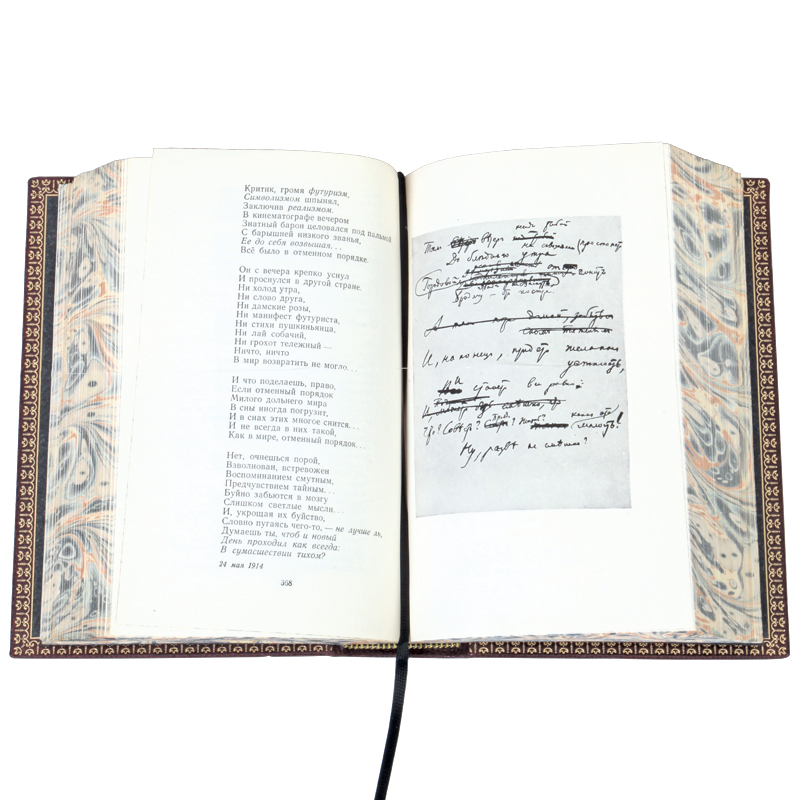 Критик, громя футуризм,
Символизмом шпынял,
Заключив реализмом.
В кинематографе вечером
Знатный барон целовался под пальмой
С барышней низкого званья,
Ее до себя возвышая...
Всё было в отменном порядке.
Он с вечера крепко уснул
И проснулся в другой стране.
Ни холод утра,
Ни слово друга,
Ни дамские розы,
Ни манифест футуриста,
Ни стихи пушкиньянца,
Ни лай собачий,
Ни грохот тележный —
Ничто, ничто
В мир возвратить не могло...
И что поделаешь, право,
Если отменный порядок
Милого дольнего мира
В сны иногда погрузит,
И в снах этих многое снится...
И не всегда в них такой,
Как в мире, отменный порядок...
Нет, очнешься порой,
Взволнован, встревожен
Воспоминанием смутным,
Предчувствием тайным...
Буйно забьются в мозгу
Слишком светлые мысли...
И, укрощая их буйство,
Словно пугаясь чего-то, — не лучше ль,
Думаешь ты, чтоб и новый
День проходил как всегда:
В сумасшествии тихом?
24 мая 1914
368
утра
И, наконец, придет желанная
усталость,
станет все равно:
Совесть?
Ну, разве не смешно?